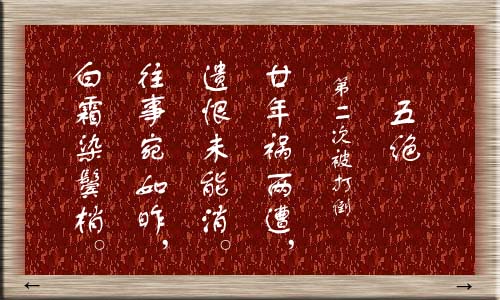 五绝
第二次被打倒
廿年祸两遭，
遗恨未能消。
往事宛如昨，
白霜染鬓梢。
← →